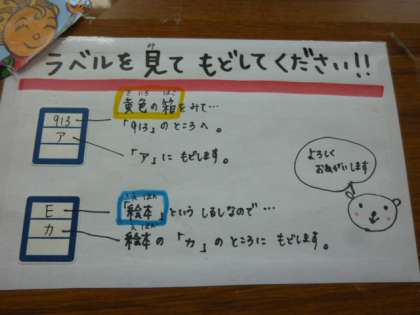 ラベルを見て もどしてください!!
913
ア
黄色の箱をみて…
「913」のところへ。
「ア」に もどします。
よろしく
おねがいします
E
カ
「絵本」という しるしなので…
絵本の 「カ」の ところに もどします。